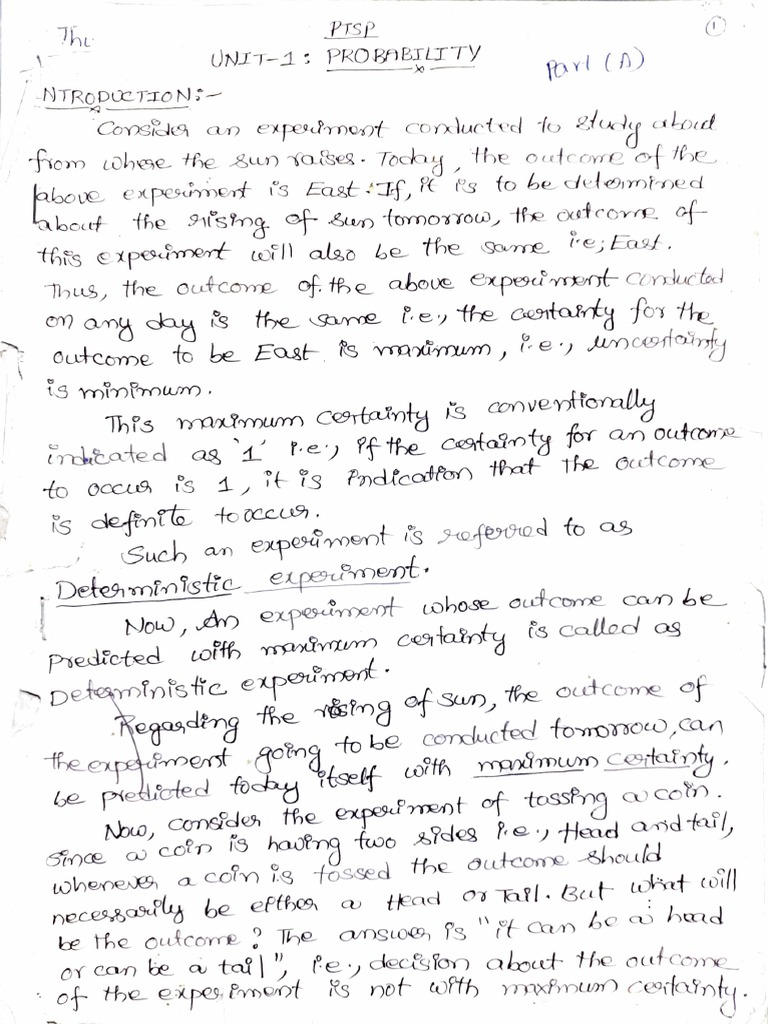 PTSP
1
UNIT-1: PROBABILITY
Part (A)
NTRODUCTION:-
Consider an experiment conducted to study about
from where the sun raises. Today, the outcome of the
above experiment is East. If, it is to be determined
about the rising of sun tomorrow, the outcome of
this experiment will also be the same i.e; East.
Thus, the outcome of the above experiment conducted
on any day is the same i.e., the certainty for the
outcome to be East is maximum, i.e., uncertainty
is minimum.
This maximum certainty is conventionally
indicated as '1' i.e., if the certainty for an outcome
to occur is 1, it is indication that the outcome
is definite to occur.
Such an experiment is referred to as
Deterministic experiment.
Now, An experiment whose outcome can be
predicted with maximum certainty is called as
Deterministic experiment.
Regarding the rising of sun, the outcome of
the experiment going to be conducted tomorrow, can
be predicted today itself with maximum certainty.
Now, consider the experiment of tossing a coin.
Since a coin is having two sides i.e., Head and tail,
whenever a coin is tossed the outcome should
necessarily be either a Head or Tail. But what will
be the outcome? The answer is "it can be a head
or can be a tail", i.e., decision about the outcome
of the experiment is not with maximum certainty.